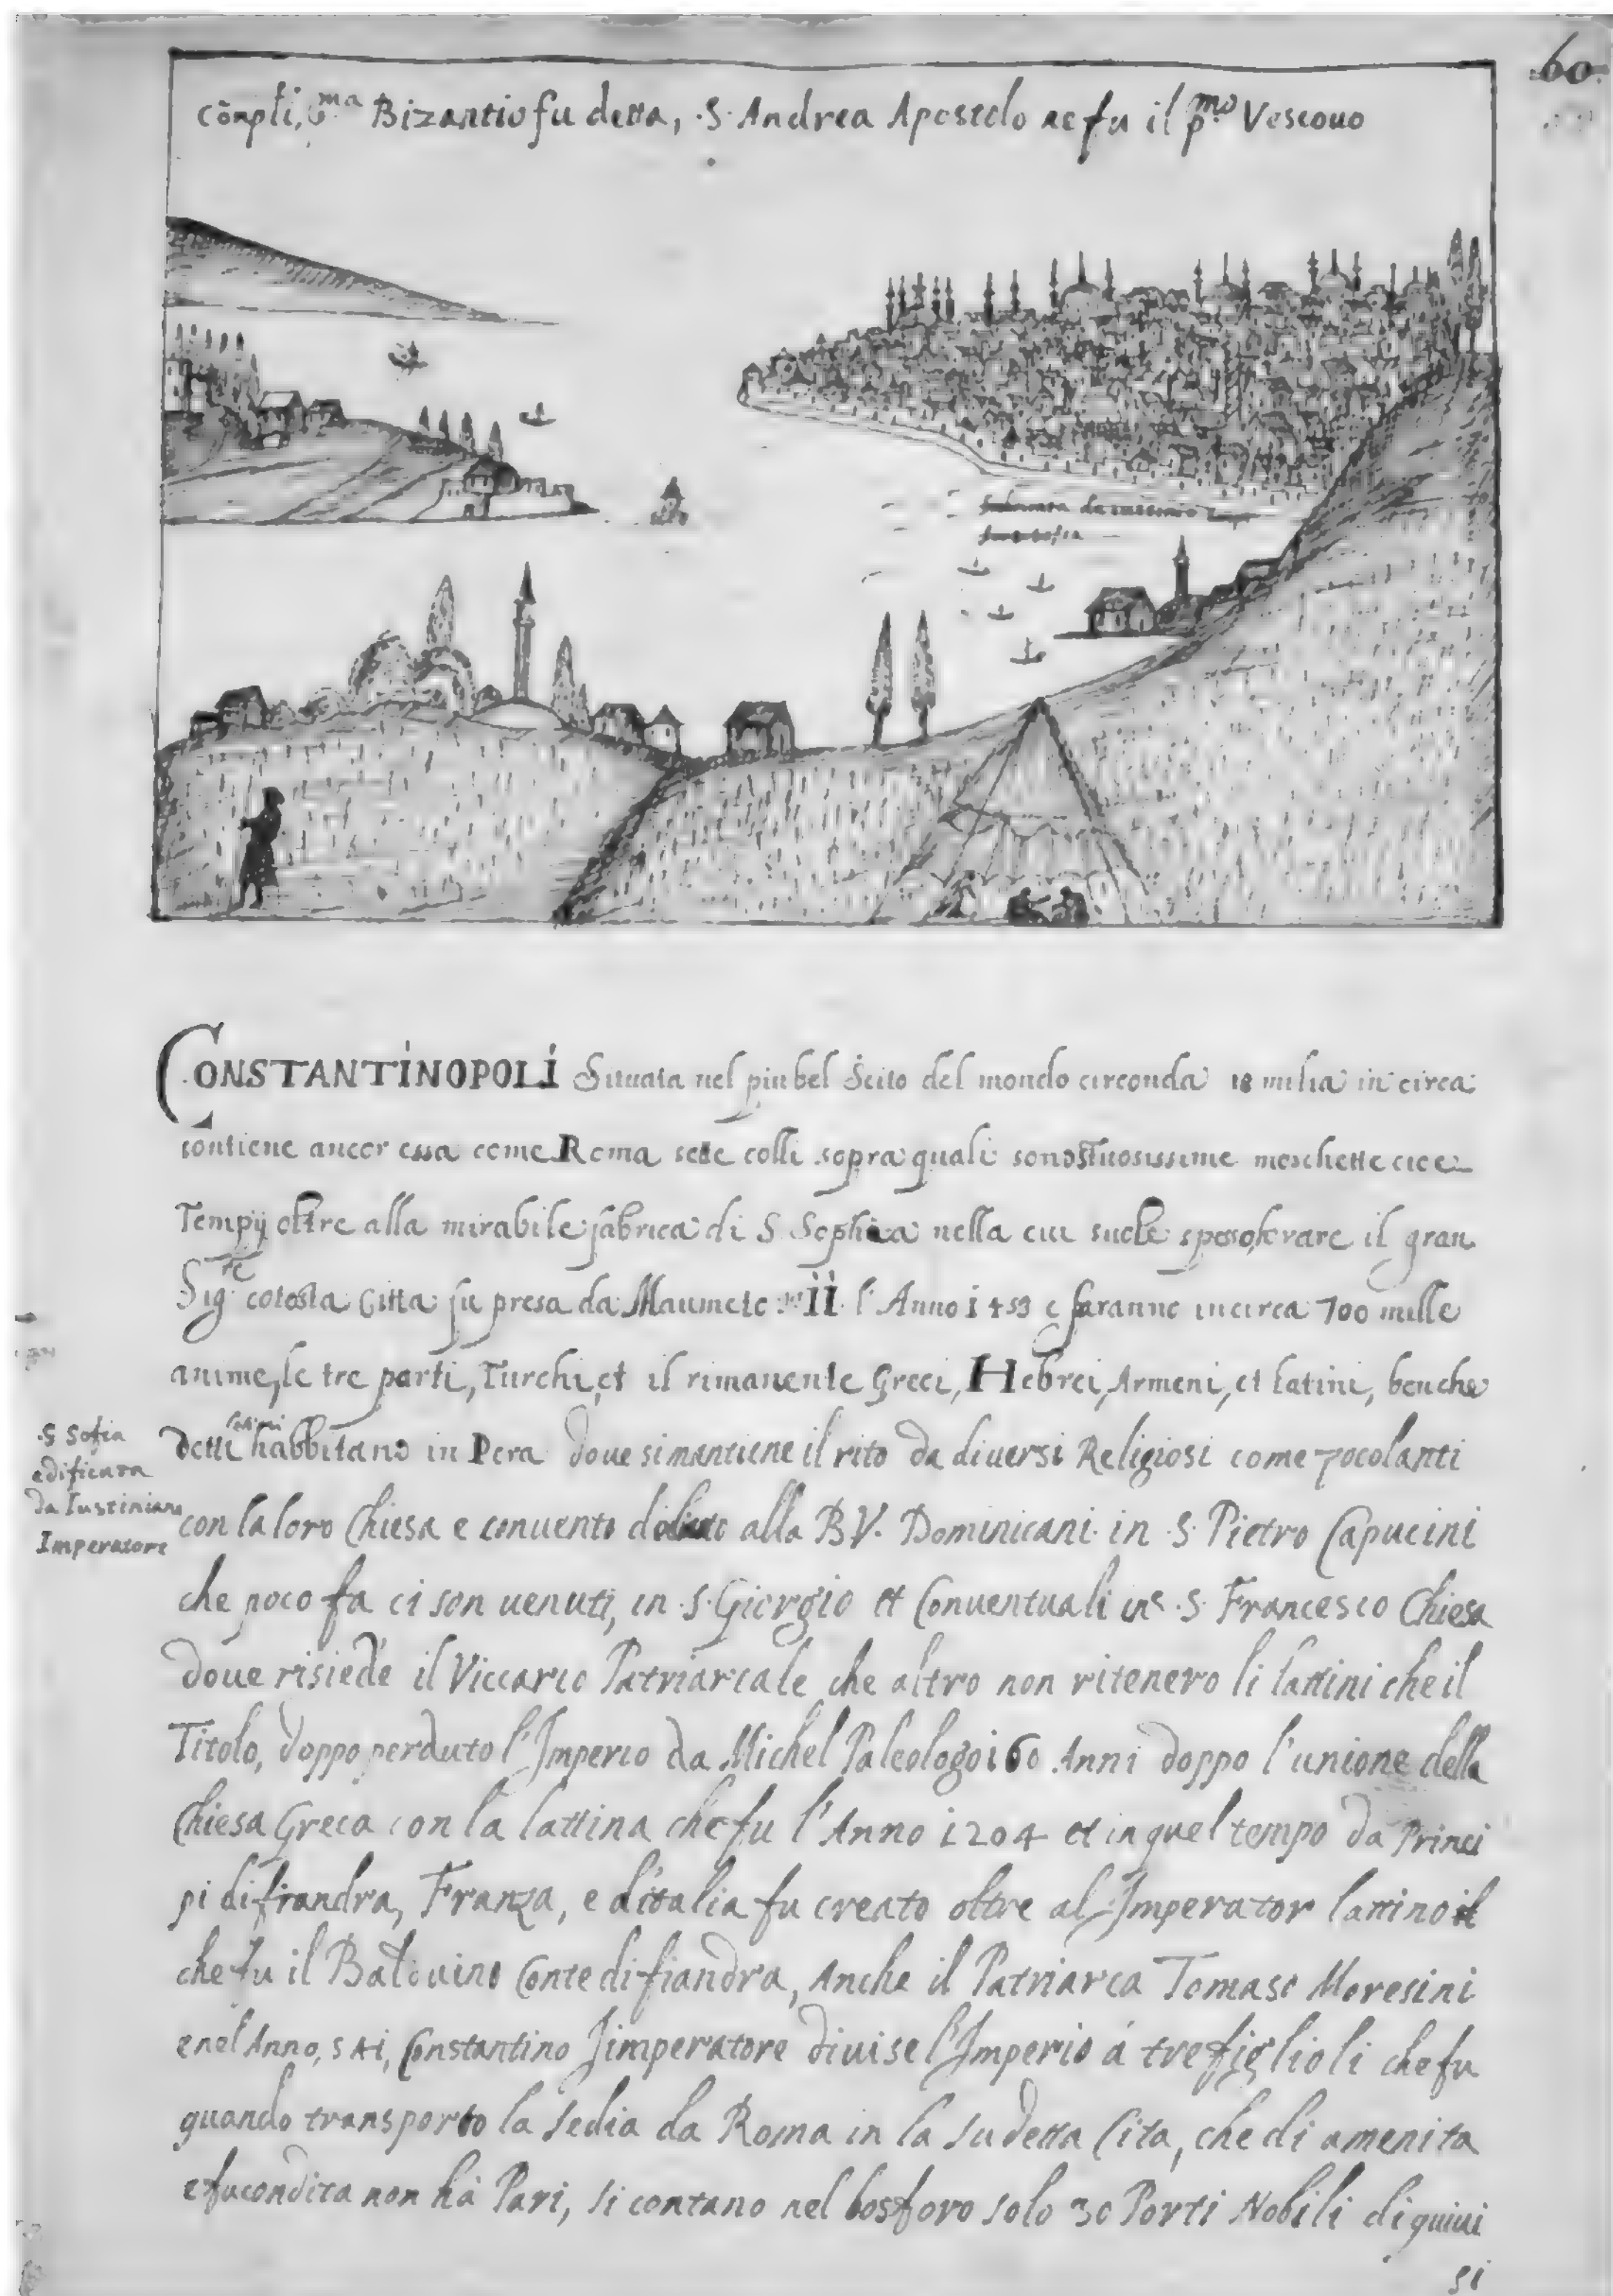 60
Cõnpli, pma Bizantio fu detta, .S. Andrea Apostolo ne fu il pmo Vescouo
CONSTANTINOPOLI Situata nel piu bel Scito del mondo circonda 18 milia in circa
contiene ancor essa come Roma sette colli sopra quali sono stuosissime moschette cioe
Tempij oltre alla mirabile fabrica di S Sophia nella cui suole spesso orare il gran
Sigre cotesta Citta fu presa da Maumeto II l'Anno 1453 e saranno incirca 700 mille
anime, le tre parti, Turchi, et il rimanente Greci, Hebrei, Armeni, et latini, benche
detti latini habbitano in Pera doue si mantiene il rito da diuersi Religiosi come zocolanti
.S Sofia
edificata
da Iustiniano
Imperatore
con la loro Chiesa e conuento alla B.V. Dominicani in .S. Pietro Capucini
che poco fa ci son uenuti, in .S. Giorgio et Conuentuali in .S. Francesco Chiesa
doue risiede il Viccario Patriarcale che altro non ritenero li lattini che il
Titolo, doppo perduto l'Imperio da Michel Paleologo 160 Anni doppo l'unione della
Chiesa Greca con la lattina che fu l'Anno 1204 et in quel tempo da Princi
pi di fiandra, Franza, e d'italia fu creato oltre al Imperator lattino
che fu il Balduino Conte di fiandra, Anche il Patriarca Tomaso Moresini
e nel Anno, Constantino Iimperatore diuise l'Imperio á tre figlioli che fu
quando transporto la sedia da Roma in la sudetta Cita, che di amenita
e fucondita non hà Pari, si contano nel bosforo solo 30 Porti Nobili di quiui
si